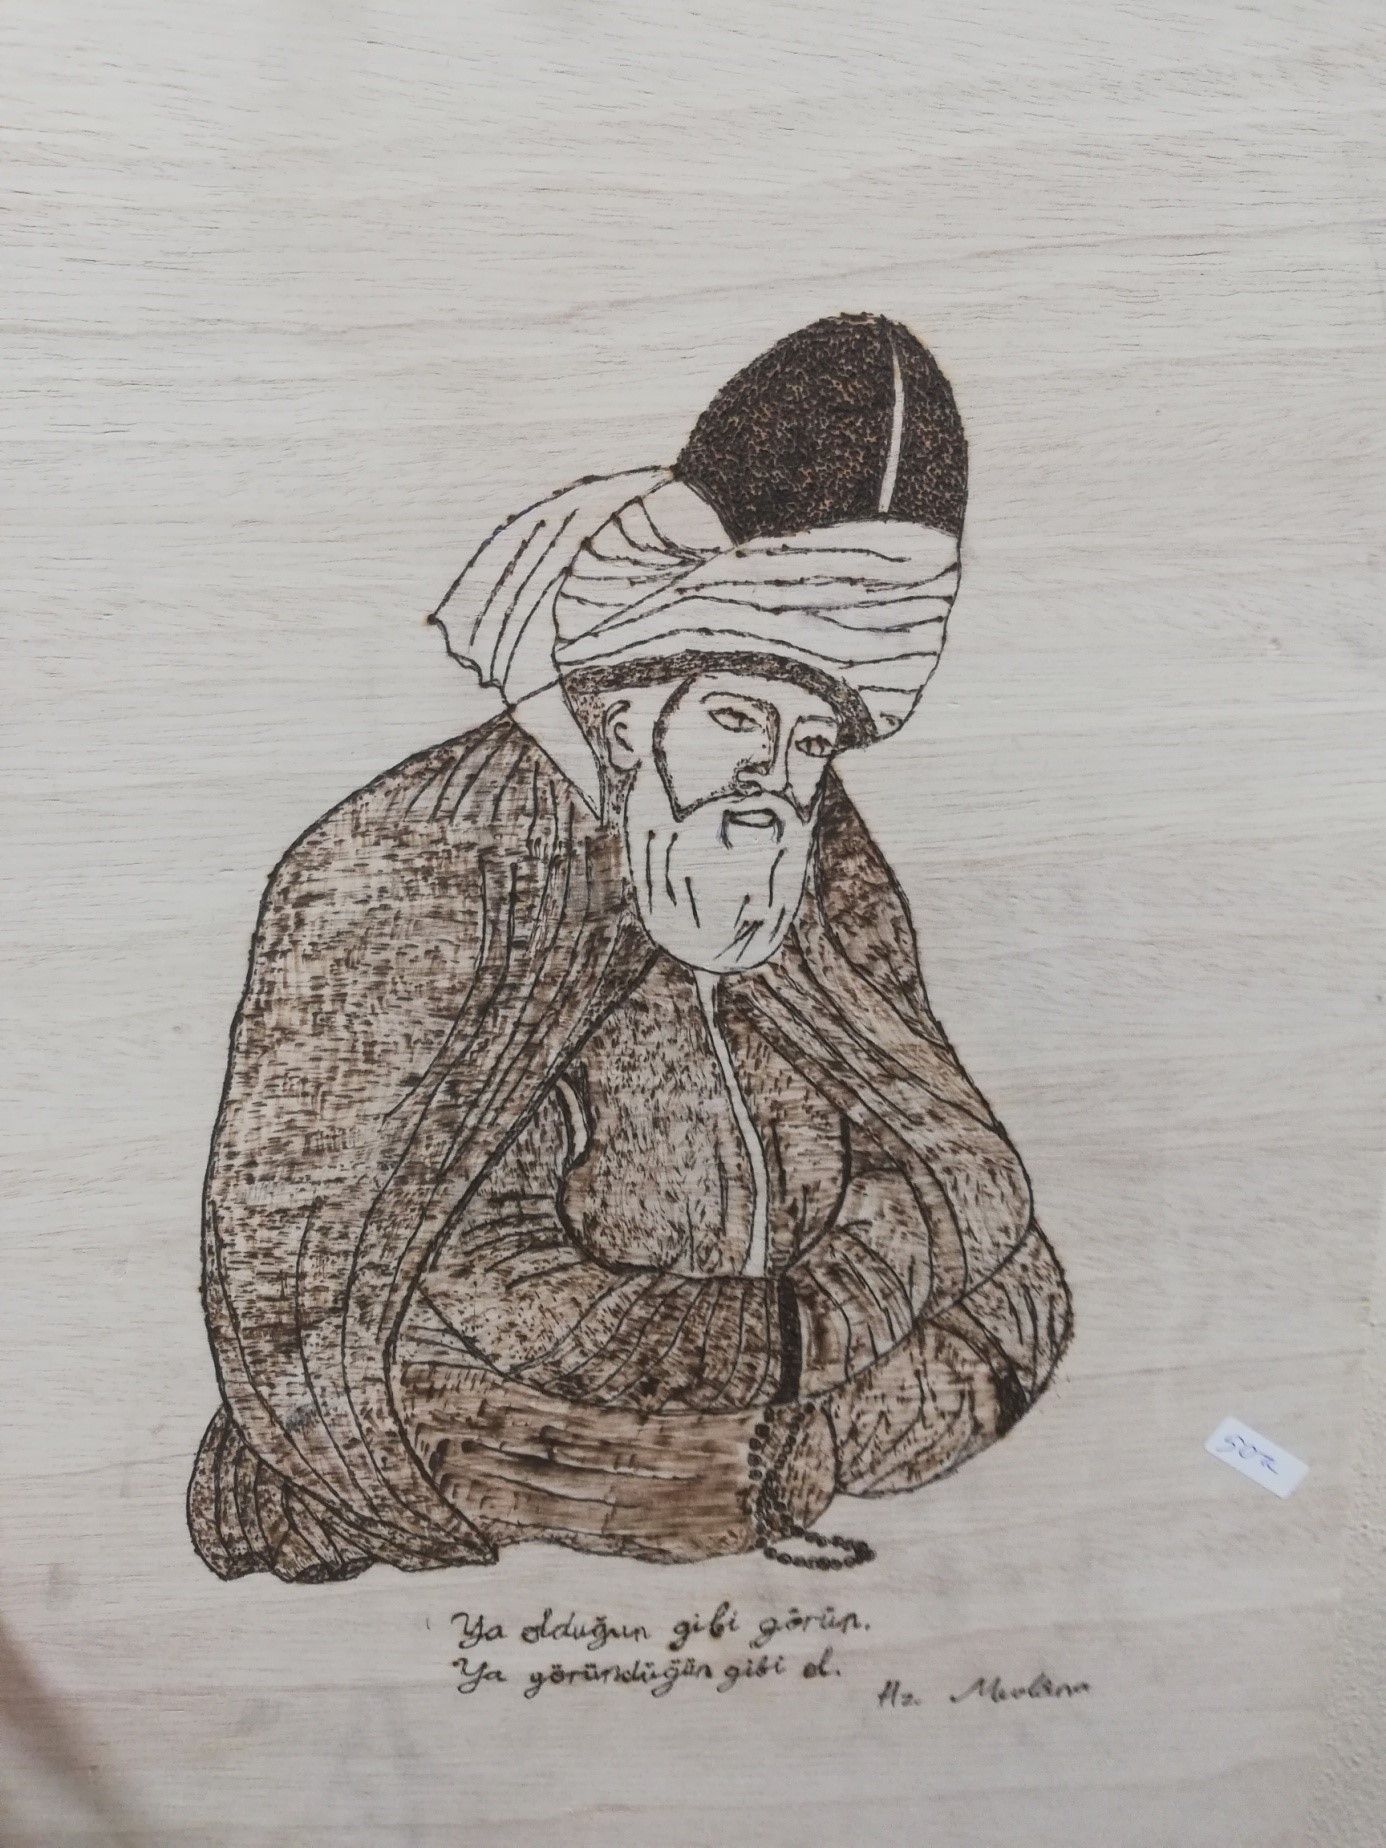 Ya olduğun gibi görün.
Ya göründüğün gibi ol.
Hz. Mevlâna